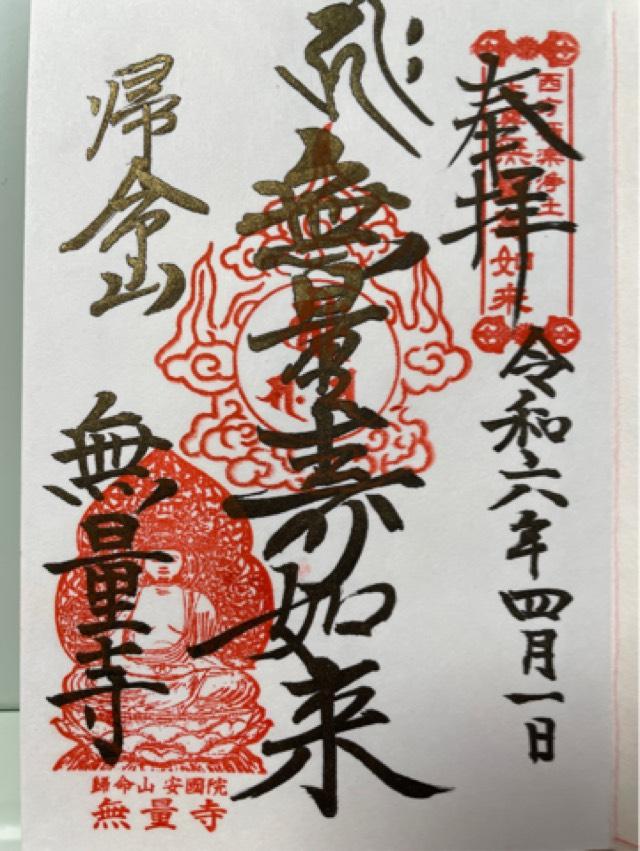 奉拝
西方極楽浄土
如来
令和六年四月一日
無量寿如来
帰命山
無量寺
歸命山 安國院
無量寺